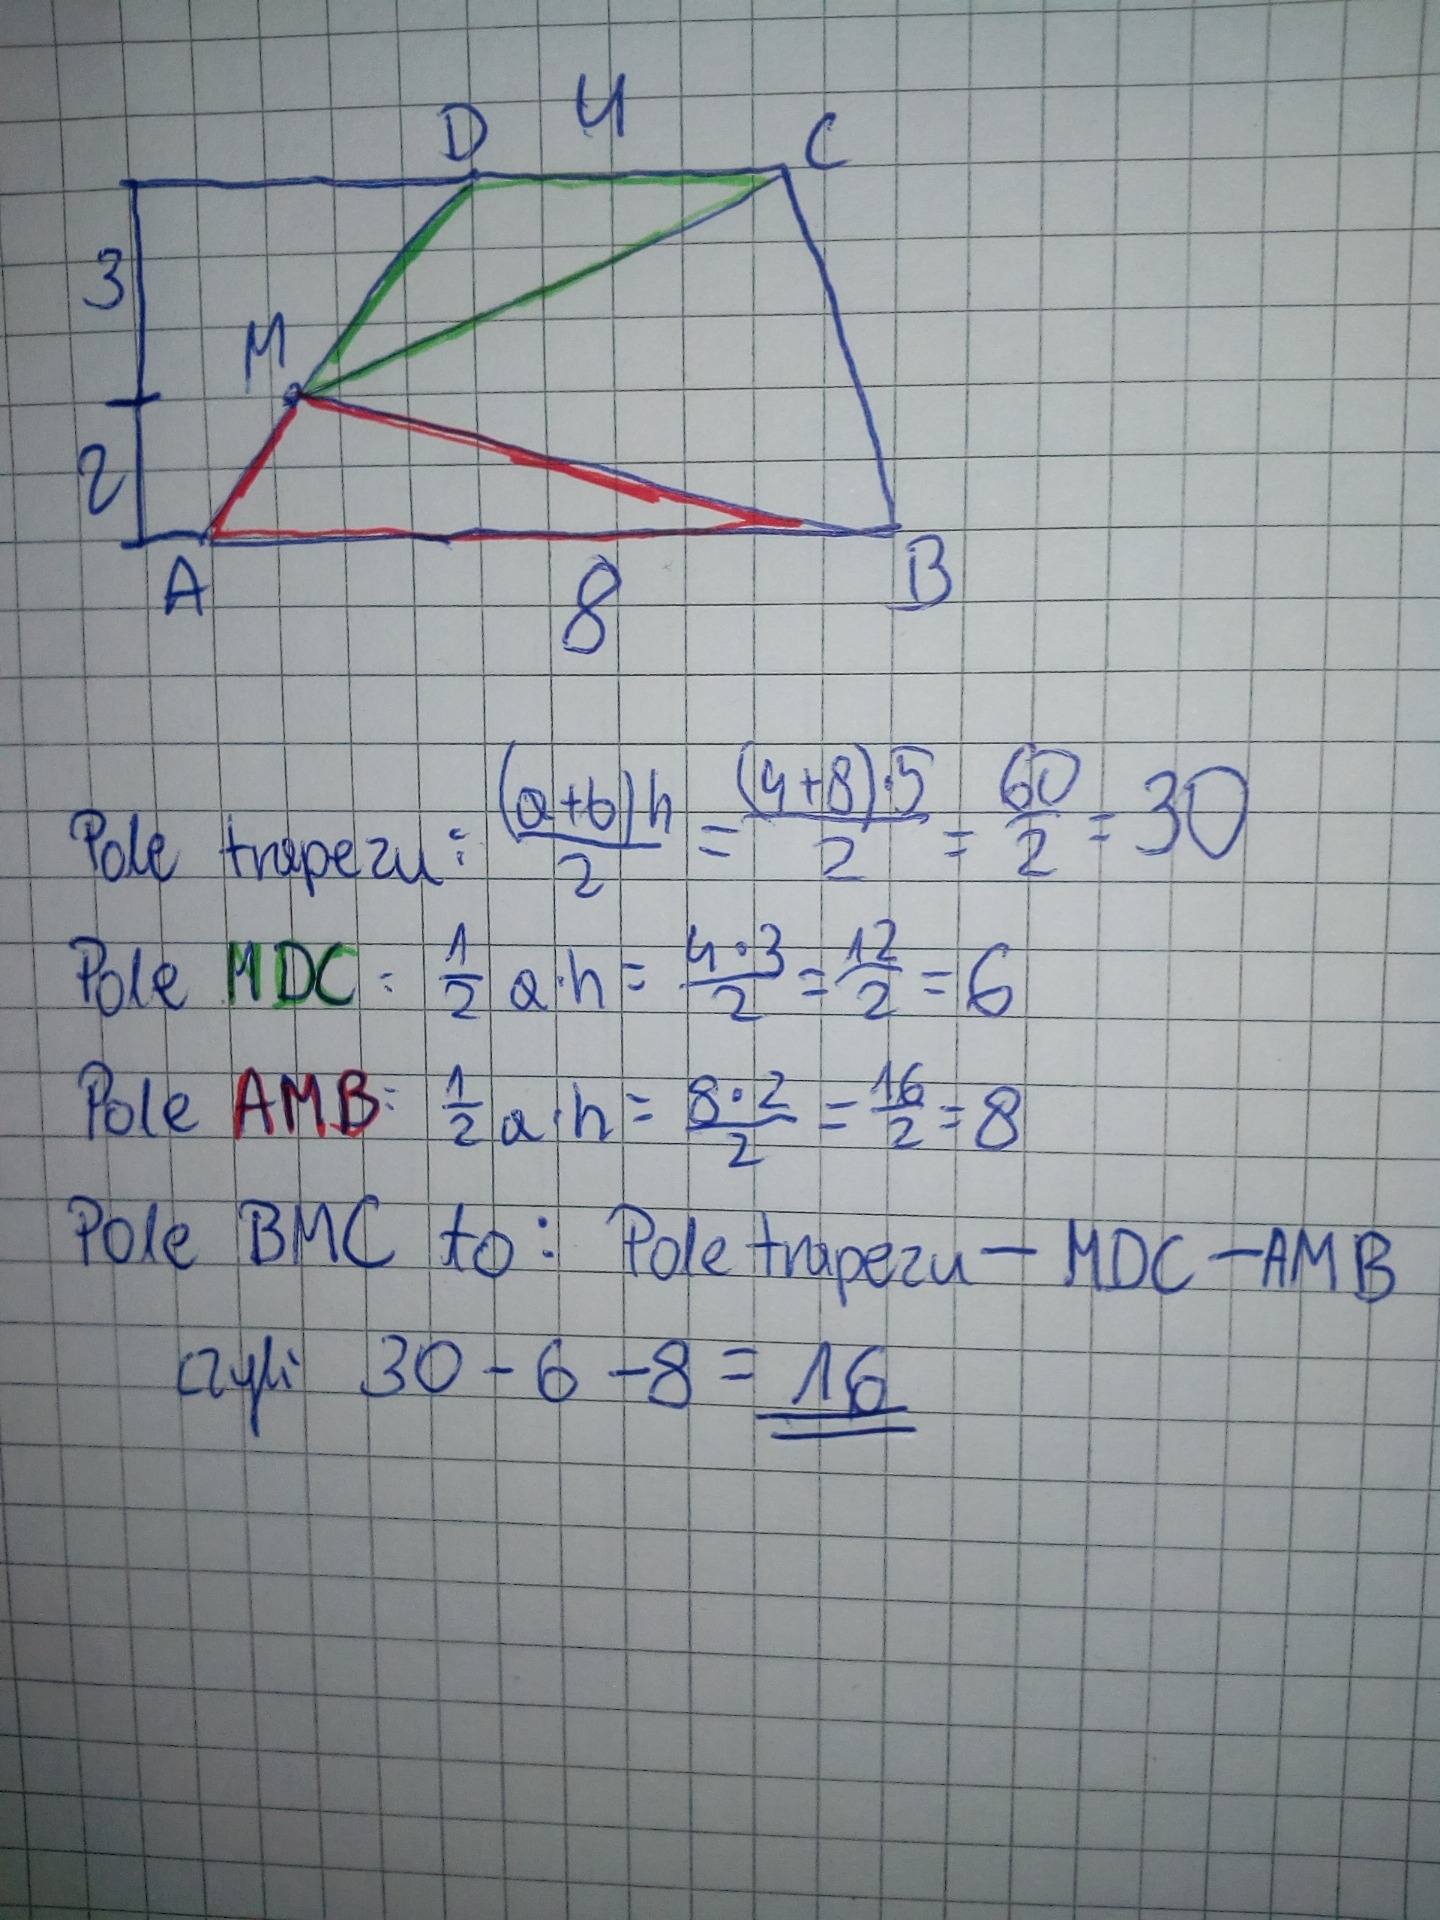 D 4 C
3
M
2
A 8 B
Pole trapezu: (a+b)h/2 = (4+8)·5/2 = 60/2 = 30
Pole MDC: 1/2 a·h = 4·3/2 = 12/2 = 6
Pole AMB: 1/2 a·h = 8·2/2 = 16/2 = 8
Pole BMC to: Pole trapezu - MDC - AMB
czyli 30 - 6 - 8 = 16